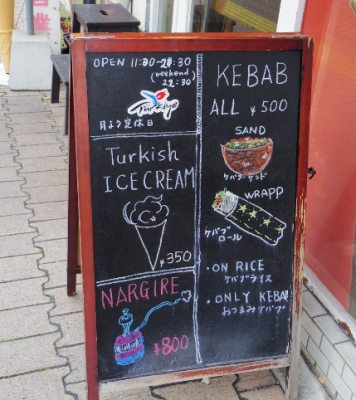 OPEN 11:30-20:30
(weekend)
22:30
Türkiye
月よう定休日
Turkish
ICE CREAM
¥350
NARGIRE
¥800
KEBAB
ALL ¥500
SAND
ケバブサンド
WRAPP
ケバブ
ロール
・ON RICE
ケバブライス
・ONLY KEBAB
おつまみケバブ